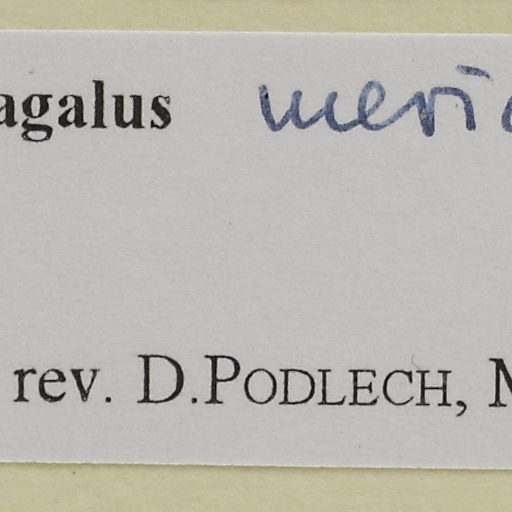 agalus meri
rev. D.PODLECH, M